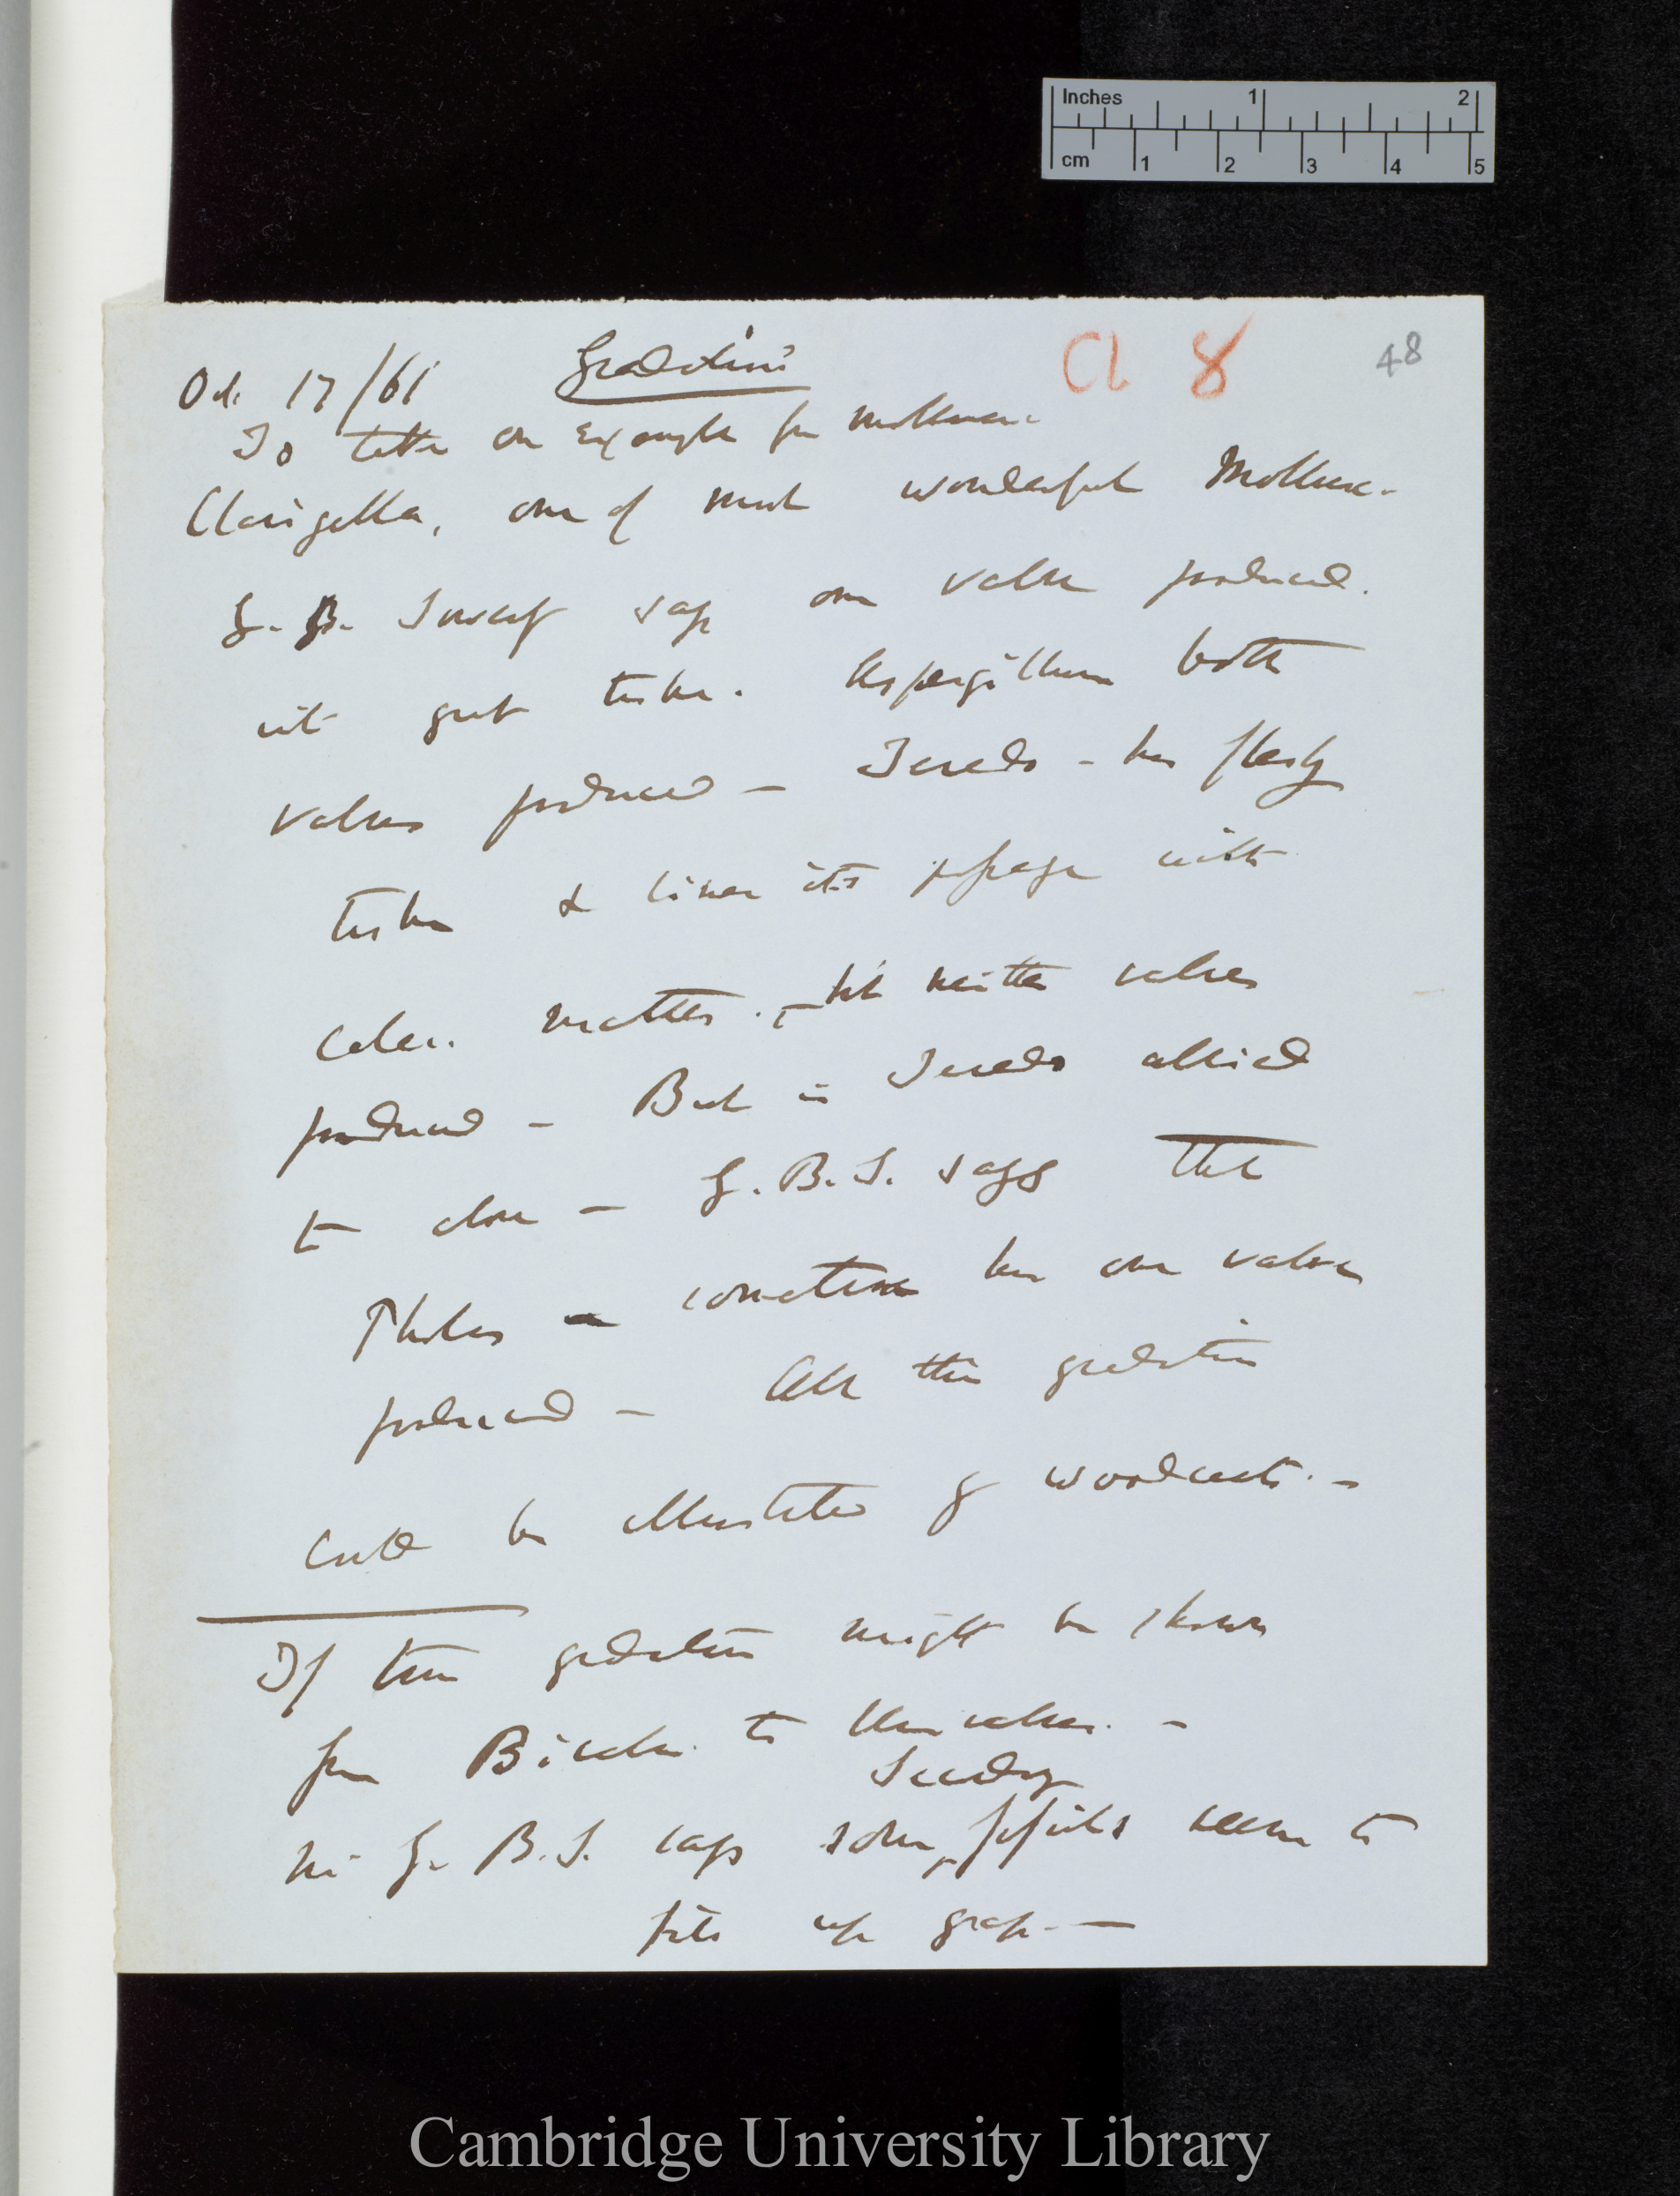 Inches 1 2
cm 1 2 3 4 5
Oct. 17/61 Gradations Ch 8 48
To take an Example from mollusca.
Clavigella, one of most wonderful Mollusc.
G. B. Sowerby says one valve produced.
with great tube. Aspergillum both
valves produced — Teredo - has fleshy
tube & lines its passage with
calc. matter. , but neither valves
produced — But is Teredo allied
to above — G.B.S. says that
Pholas sometimes has one valve
produced — All this gradation
could be illustrated by woodcuts. —
If true gradation might be shown
from Bivalve. to Univalve. —
Secondary
Mr G. B.S. says some fossils seem to
fill up gap. —
Cambridge University Library